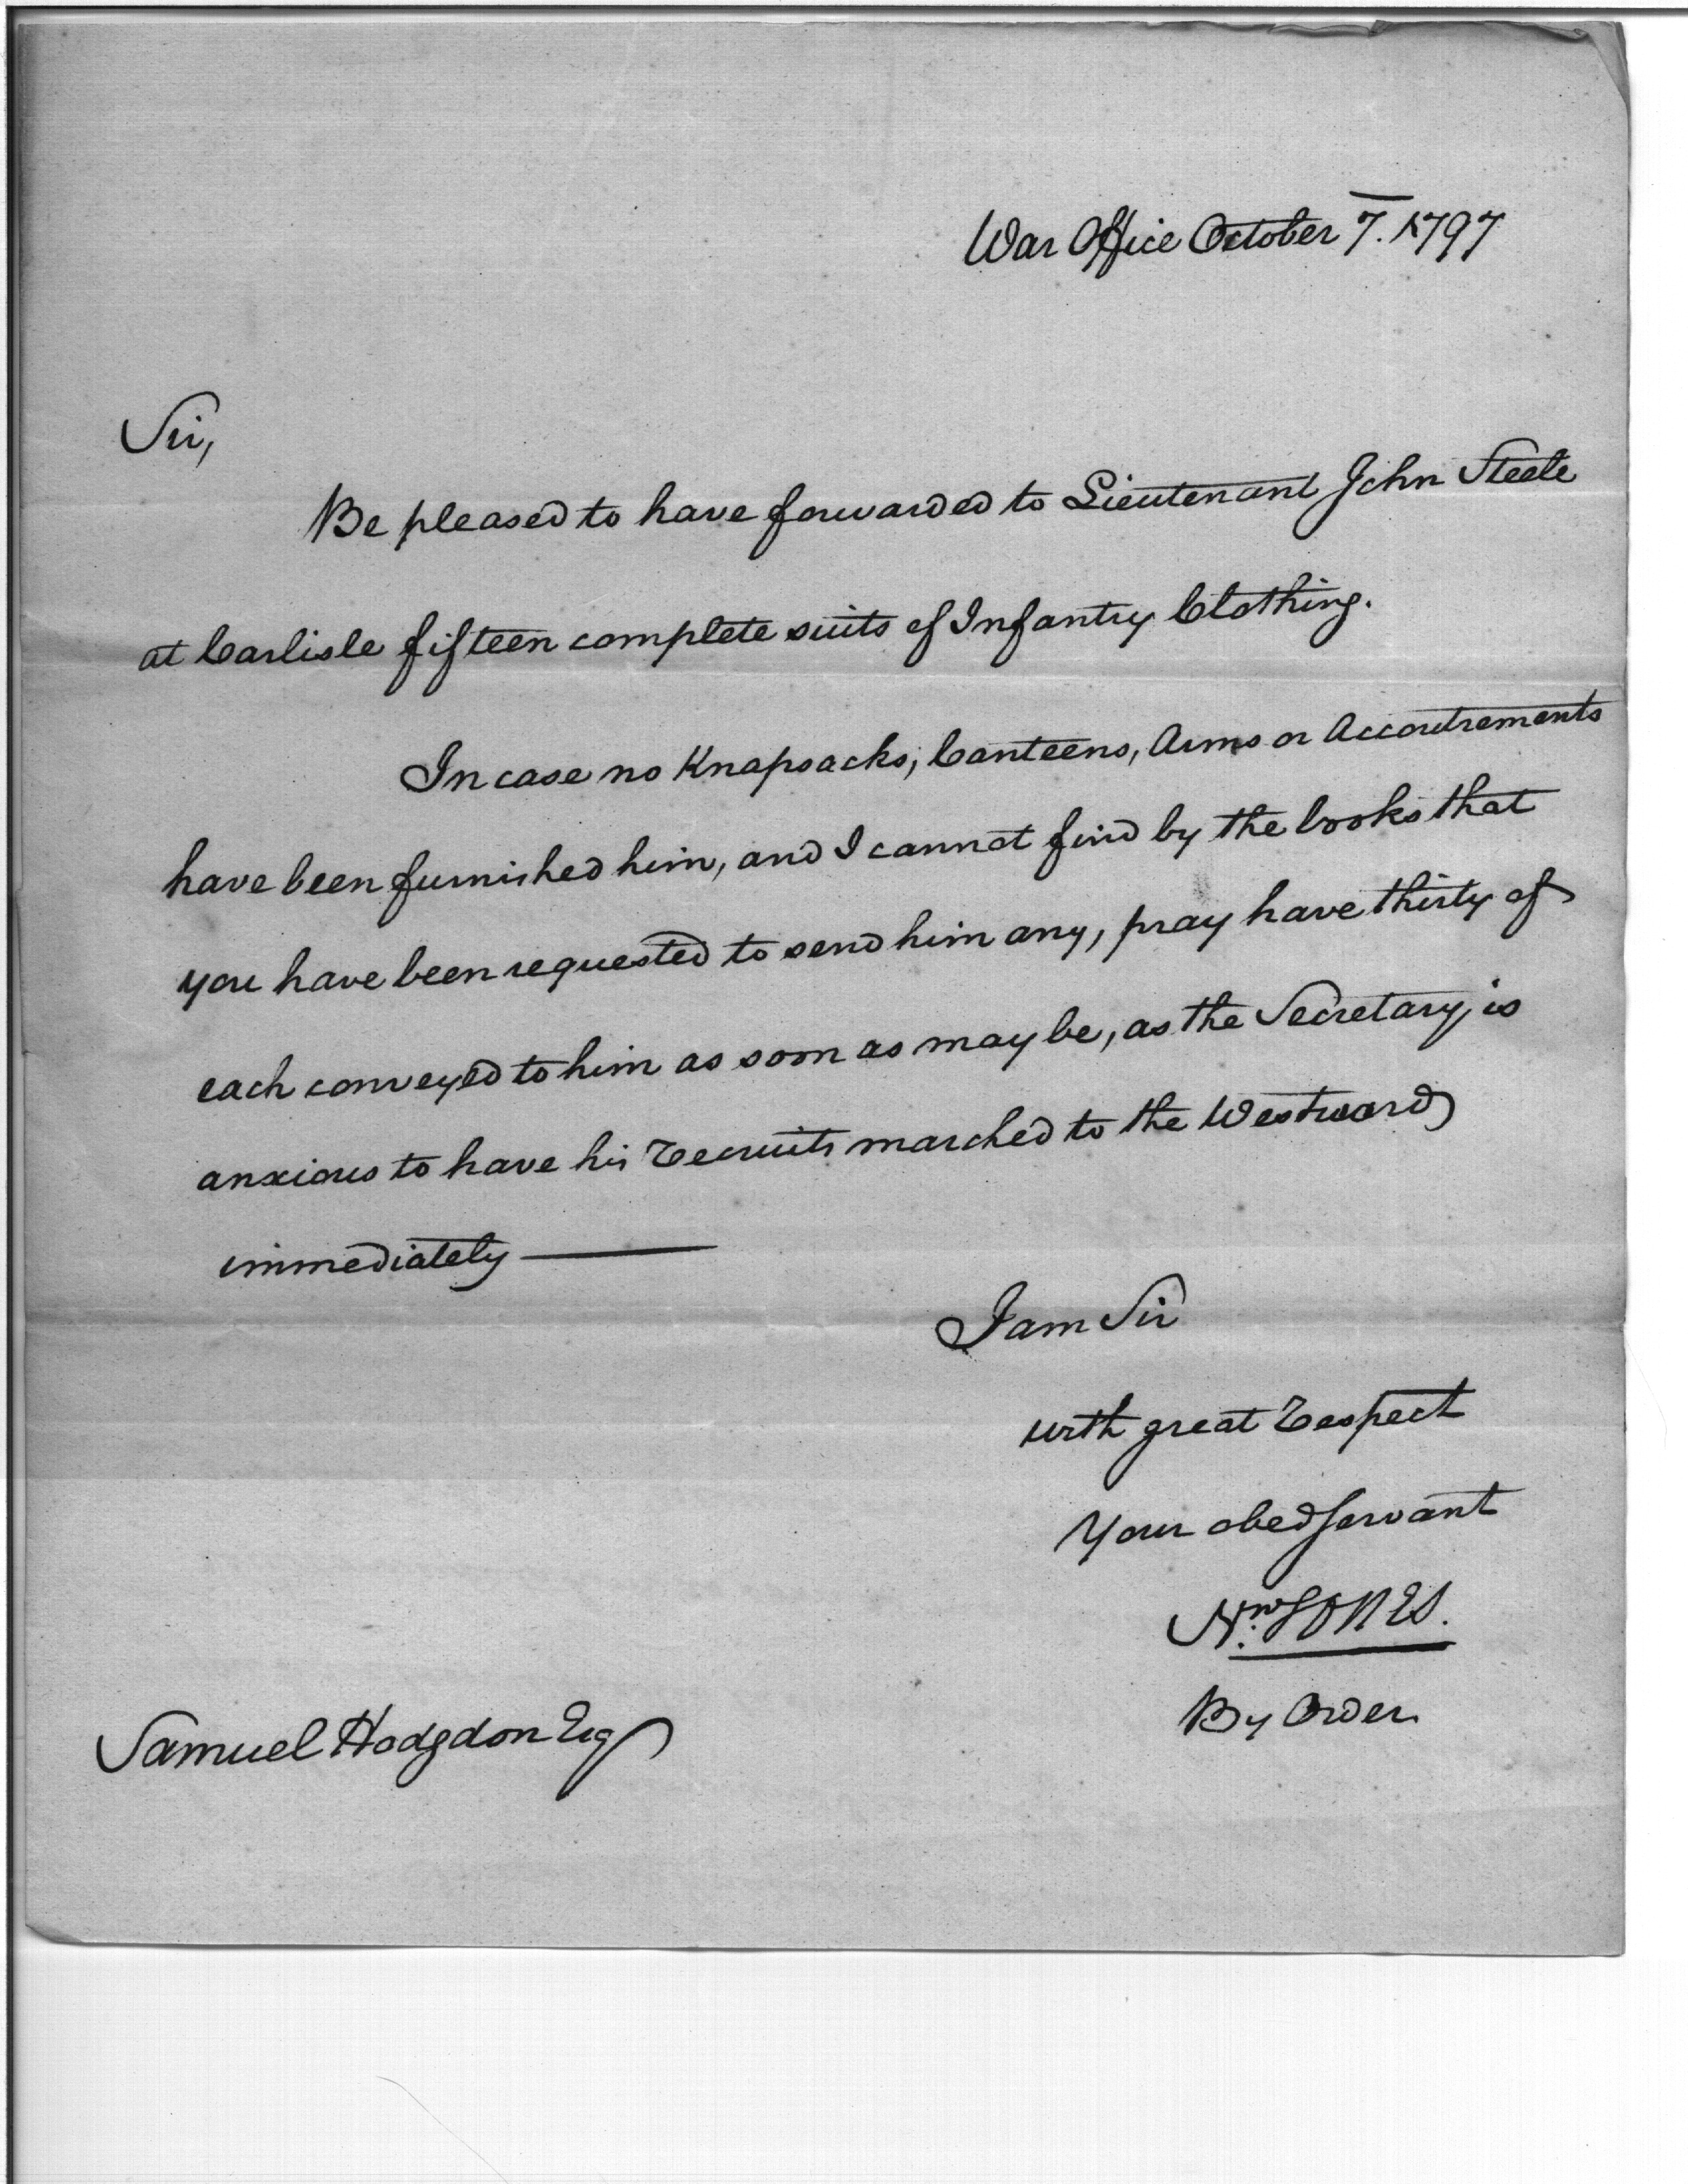 War Office October 7. 1797
Sir,
Be pleased to have forwarded to Lieutenant John Steele
at Carlisle fifteen complete suits of Infantry Clothing.
In case no Knapsacks, Canteens, Arms or Accoutrements
have been furnished him, and I cannot find by the books that
you have been requested to send him any, pray have thirty of
each conveyed to him as soon as may be, as the Secretary is
anxious to have his recruits marched to the Westward
immediately —
I am Sir
with great respect
Your obed servant
Wm JONES.
By Order
Samuel Hodgdon Esq